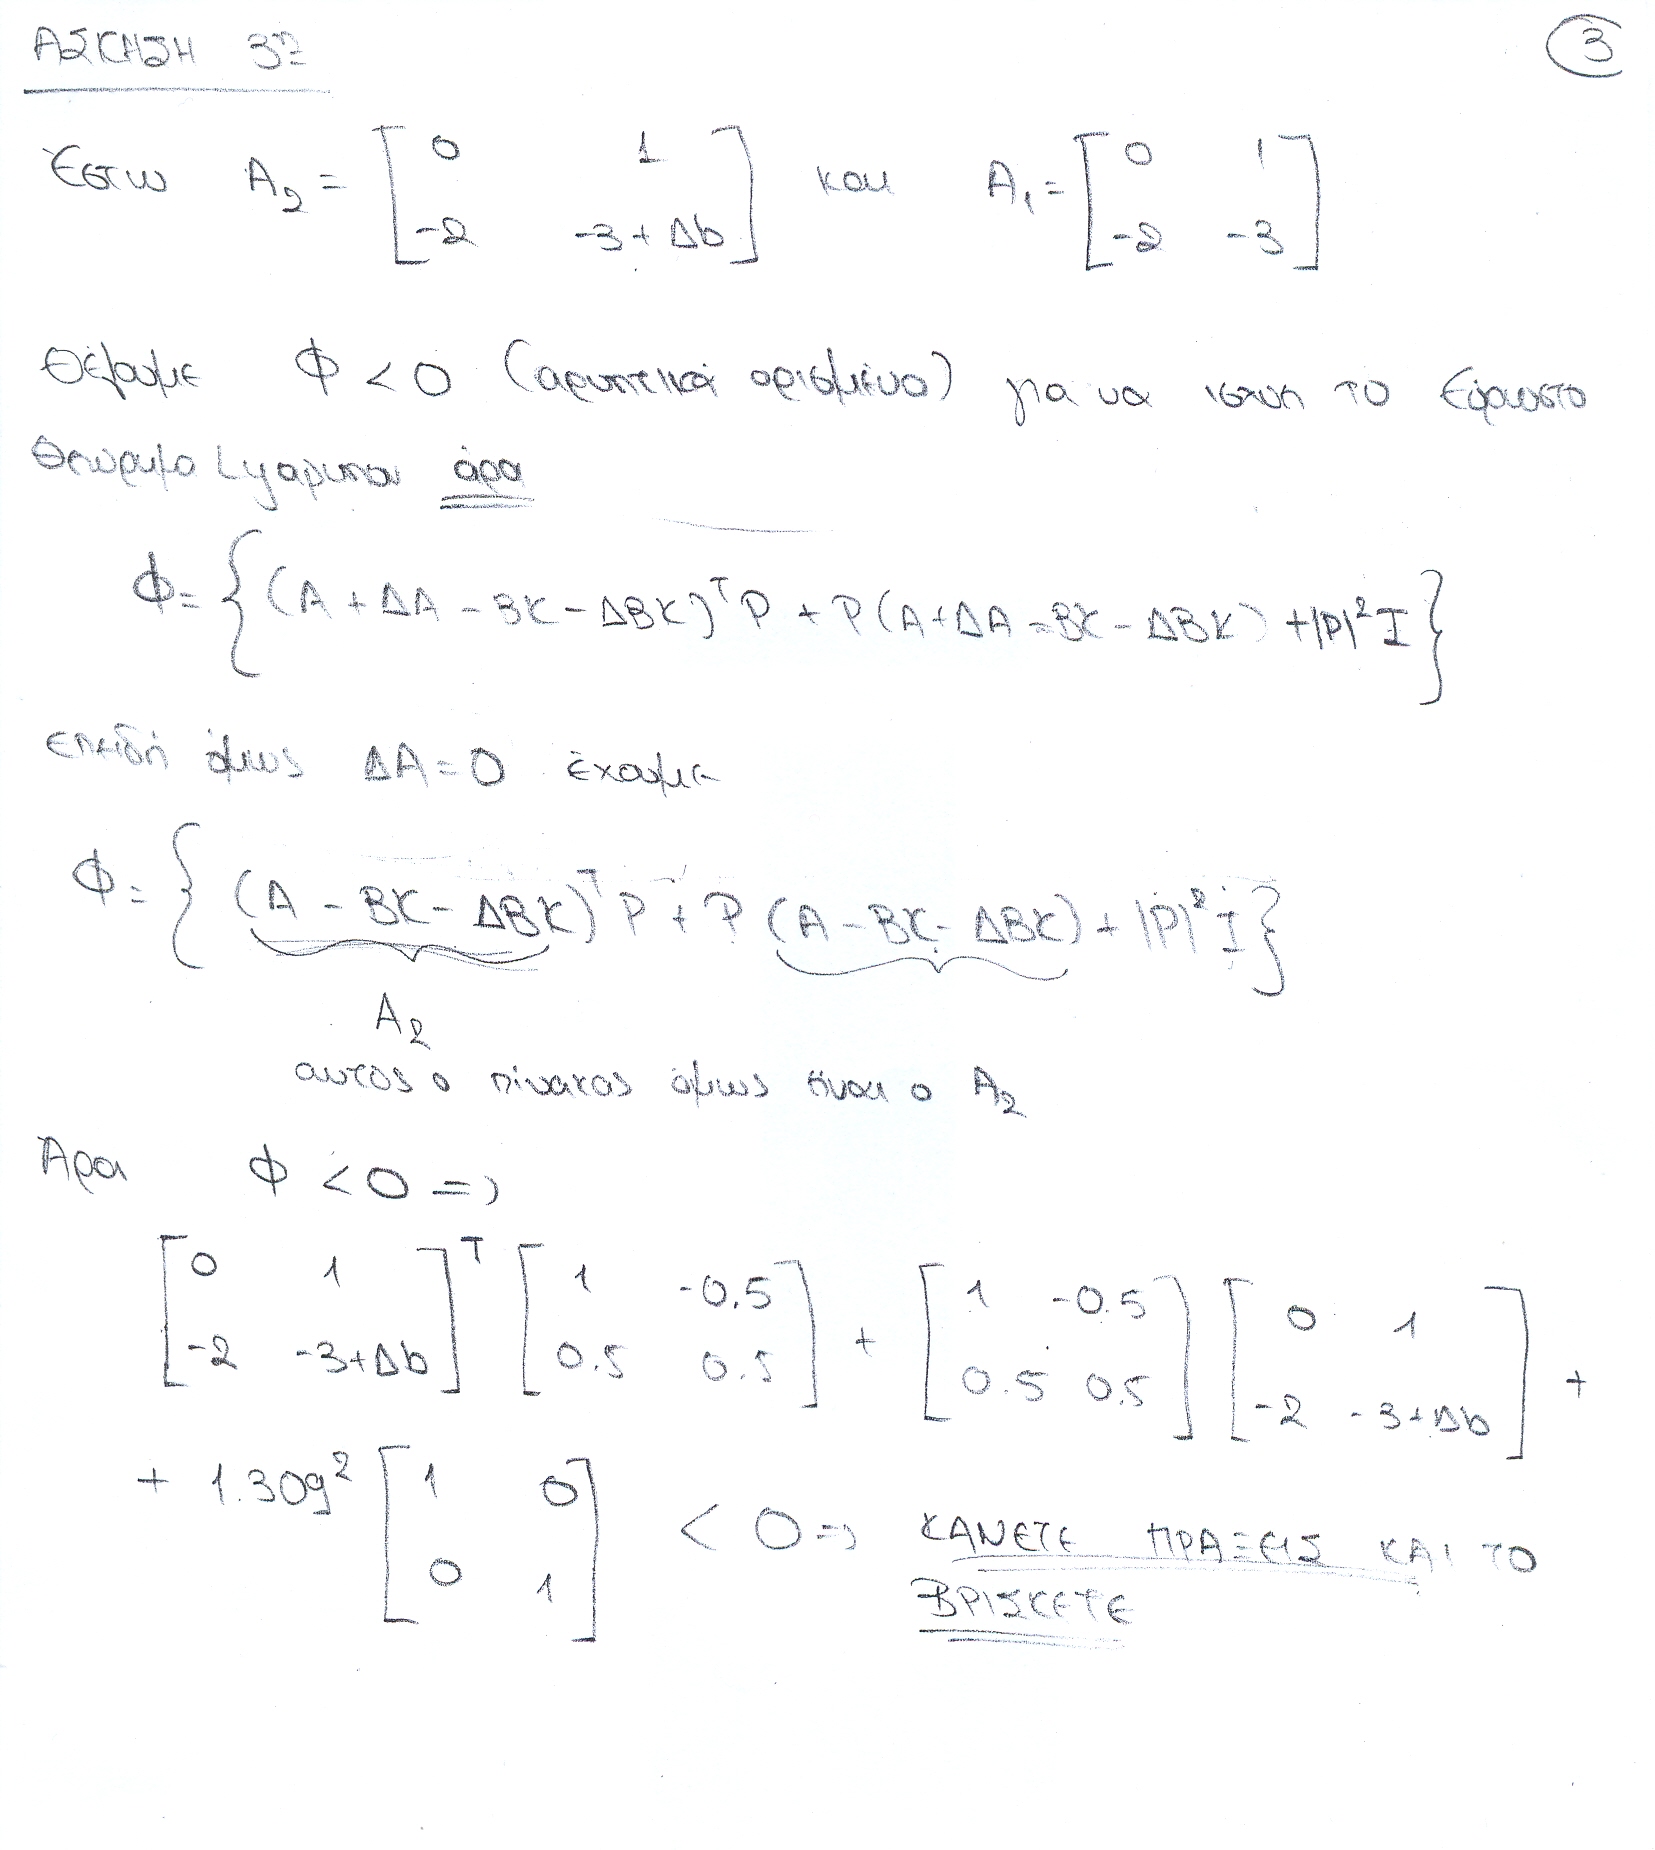 ΑΣΚΗΣΗ 3η
3
Έστω A2 = [ 0 1 ; -2 -3+Δb ] και A1 = [ 0 1 ; -2 -3 ]
Θέλουμε Φ < 0 (αρνητικά ορισμένο) για να ισχύη το Εύρωστο
Θεώρημα Lyapunov άρα
Φ = { (A + ΔA - BK - ΔBK)^T P + P(A + ΔA - BK - ΔBK) + |P|^2 I }
επειδή όμως ΔA = 0 έχουμε
Φ = { (A - BK - ΔBK)^T P + P (A - BK - ΔBK) + |P|^2 I }
A2
αυτός ο πίνακας όμως είναι ο A2
Άρα Φ < 0 =>
[ 0 1 ; -2 -3+Δb ]^T [ 1 -0.5 ; 0.5 0.5 ] + [ 1 -0.5 ; 0.5 0.5 ] [ 0 1 ; -2 -3+Δb ] +
+ 1.309^2 [ 1 0 ; 0 1 ] < 0 => ΚΑΝΕΤΕ ΠΡΑΞΕΙΣ ΚΑΙ ΤΟ
ΒΡΙΣΚΕΤΕ